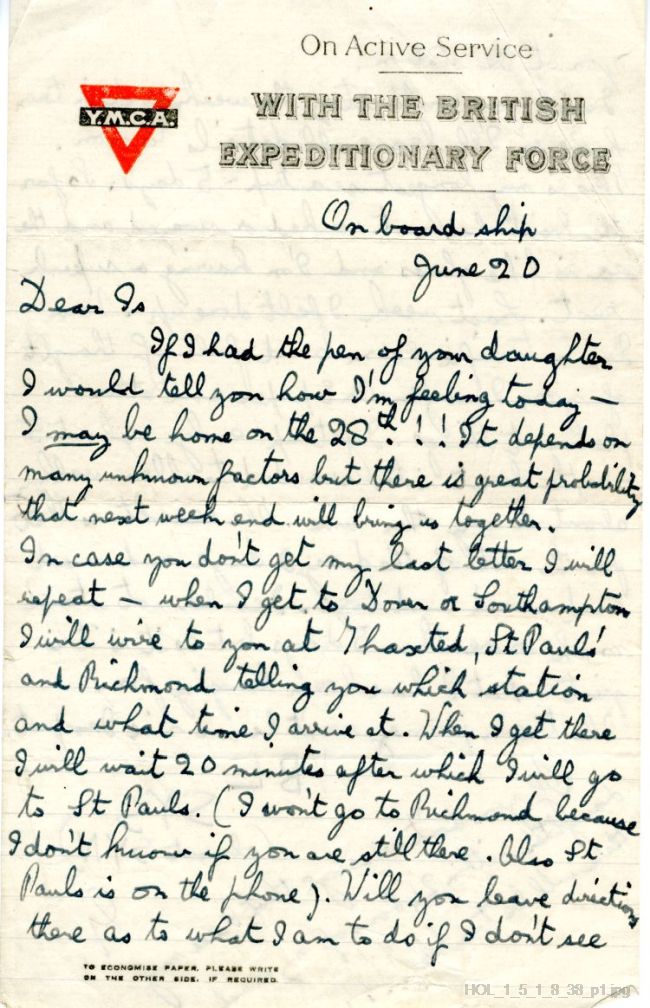 On Active Service
Y.M.C.A.
WITH THE BRITISH
EXPEDITIONARY FORCE
On board ship
June 20
Dear Is
If I had the pen of your daughter
I would tell you how I'm feeling today —
I may be home on the 28th. ! ! ! It depends on
many unknown factors but there is great probability
that next week end will bring us together.
In case you don't get my last letter I will
repeat — when I get to Dover or Southampton
I will wire to you at Thaxted, St Pauls'
and Richmond telling you which station
and what time I arrive at. When I get there
I will wait 20 minutes after which I will go
to St Pauls. (I won't go to Richmond because
I don't know if you are still there. Also St
Pauls is on the phone). Will you leave directions
there as to what I am to do if I don't see
TO ECONOMISE PAPER, PLEASE WRITE
ON THE OTHER SIDE, IF REQUIRED.
HOL_1_5_1_8_38_p1.jpg